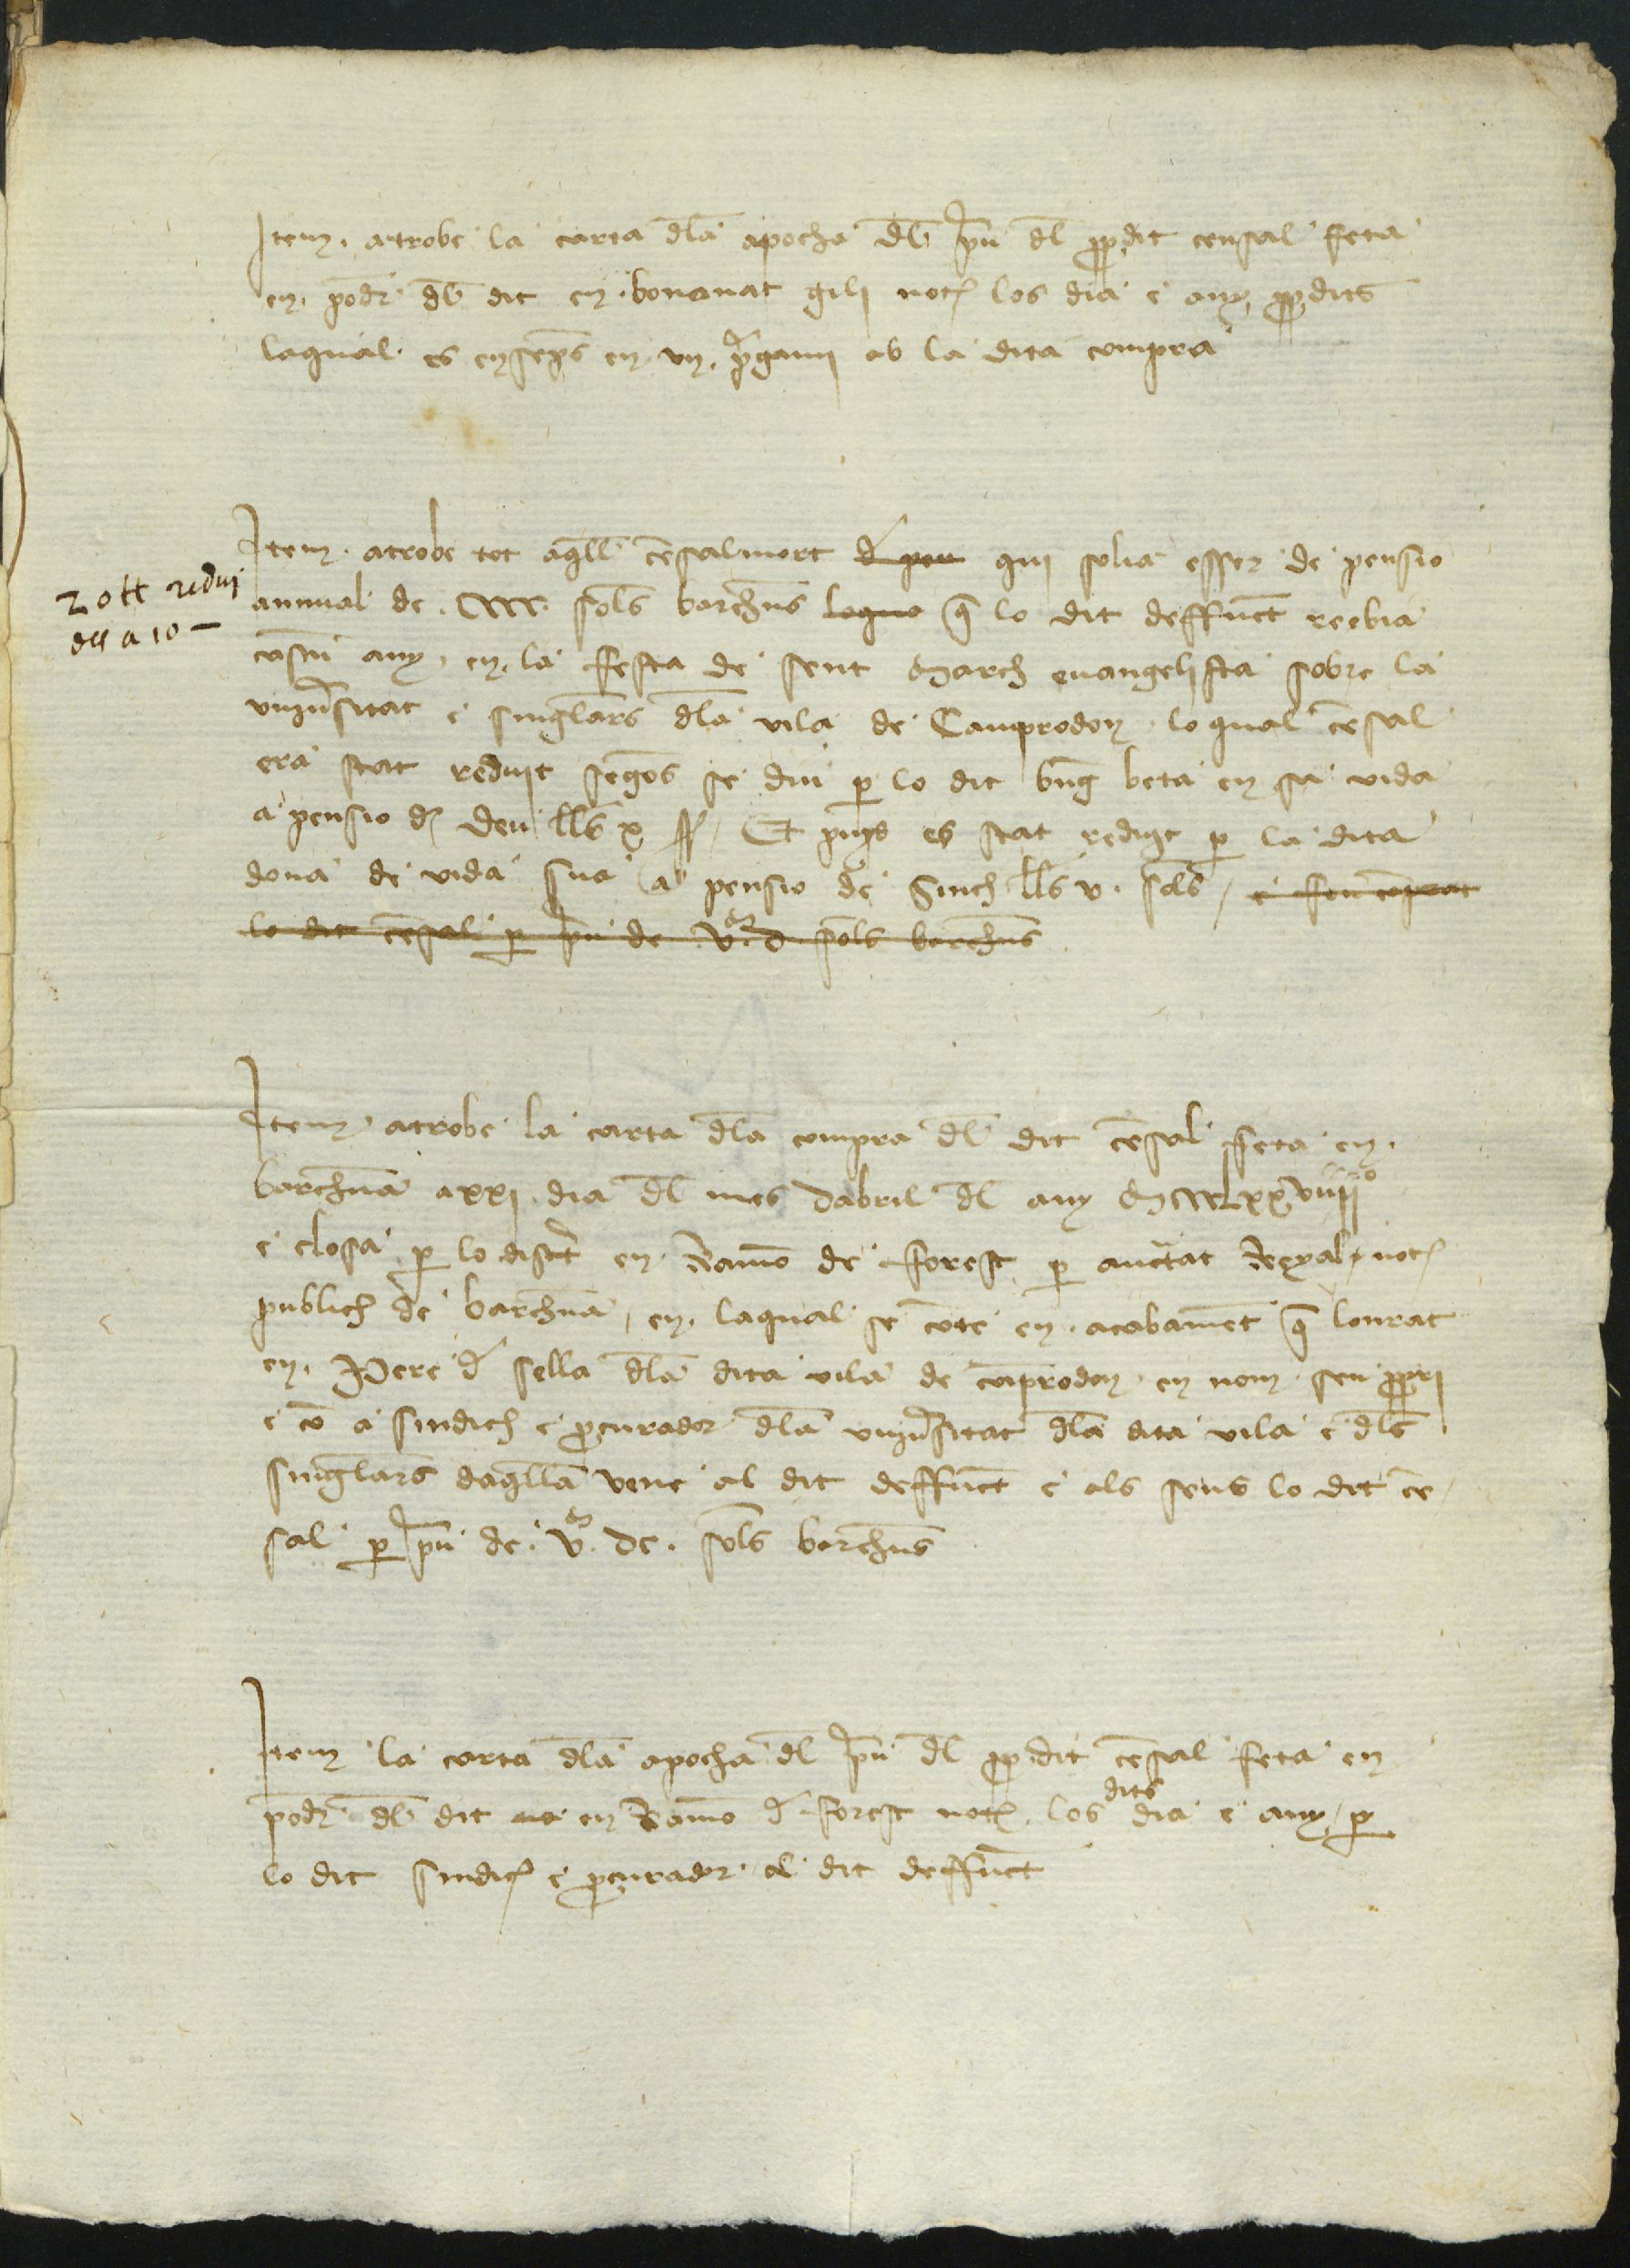 Item · atrobe la carta dla apocha dl pũ dl ꝓpdit censal feta
en · podr dl dit en · bonanat gili not los dia e any ꝓpdits
laqual · es ensemps en vn · pgami ab la dita compra
Item · atrobe tot aqll cẽsal mort d pen qui solia esser de pensio
20 ll redui
annual de · CCCC · sols barchns loqua q lo dit deffunct reebia
des a 10 –
casun any · en · la festa de sent March euangelista sobre la
vniuersitat e singlars dla vila de Camprodon · lo qual cẽsal
era stat reduit segons se diu p lo dit bng beta en sa vida
a pensio d deu lls x ss / Et puys es stat redigt p la dita
dona de vida sua a pensio de Sinch lls v · sols / e fou comprat
lo dit cẽsal p pũ de · v · d sols barchns
Item · atrobe la carta dla compra dl dit cẽsal feta en ·
barchna a xxj · dia dl mes dabril dl any MCCCLxxviiijº
e closa p lo discret en · Ramo de forest p auctat Reyal · not
publich de barchna / en · laqual se cõte en · acabamẽt q lonrat
en · Pere d sella dla dita vila de cãprodon · en nom · seu ꝓpri
e cõ a sindich e ꝓcurador dla vniuersitat dla dita vila e dls
singlars daqlla vene al dit deffunct e als seus lo dit cẽ
sal p pũ de · v · dc · sols barchns
Item la carta dla apocha dl pũ dl ꝓpdit cẽsal feta en
podr dl dit en Ramo d forest not los dits dia e any / p
lo dit sindich e ꝓcurador al dit deffunct